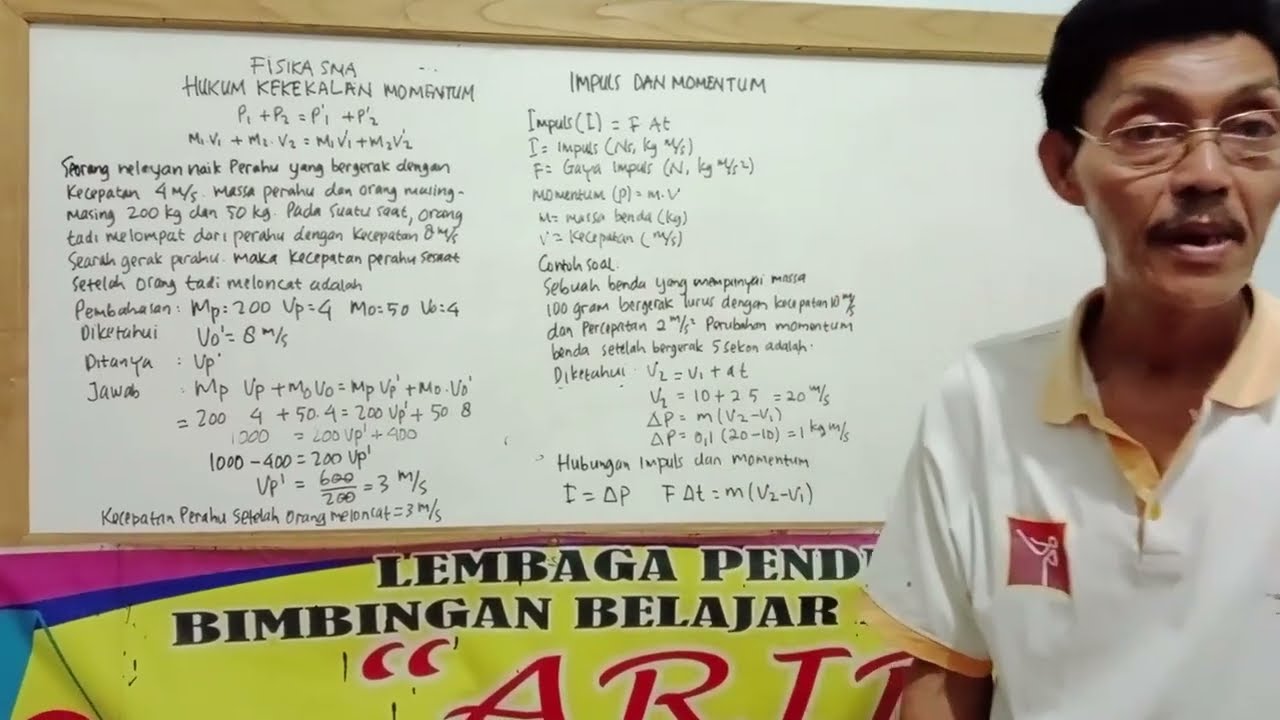 FISIKA SMA
HUKUM KEKEKALAN MOMENTUM
P₁ + P₂ = P'₁ + P'₂
M₁.V₁ + M₂.V₂ = M₁V'₁ + M₂V'₂
Seorang nelayan naik Perahu yang bergerak dengan
Kecepatan 4 m/s. massa perahu dan orang masing-
masing 200 kg dan 50 kg. Pada suatu saat, orang
tadi melompat dari perahu dengan Kecepatan 8 m/s
Searah gerak perahu. maka Kecepatan perahu sesaat
setelah orang tadi meloncat adalah
Pembahasan : Mp = 200 Vp = 4 Mo = 50 Vo = 4
Diketahui Vo' = 8 m/s
Ditanya : Vp'
Jawab : Mp Vp + Mo Vo = Mp Vp' + Mo.Vo'
= 200 4 + 50.4 = 200 Vp' + 50 8
1000 = 200 Vp' + 400
1000 - 400 = 200 Vp'
Vp' = 600/200 = 3 m/s
Kecepatan Perahu setelah orang meloncat = 3 m/s
IMPULS DAN MOMENTUM
Impuls (I) = F Δt
I = Impuls (Ns, kg m/s)
F = Gaya Impuls (N, kg m/s²)
Momentum (p) = m.v
M = massa benda (kg)
V = Kecepatan (m/s)
Contoh soal.
Sebuah benda yang mempunyai massa
100 gram bergerak lurus dengan kecepatan 10 m/s
dan Percepatan 2 m/s² Perubahan momentum
benda setelah bergerak 5 sekon adalah.
Diketahui. V₂ = V₁ + at
V₂ = 10 + 2 5 = 20 m/s
ΔP = m (V₂-V₁)
ΔP = 0,1 (20-10) = 1 kg m/s
Hubungan Impuls dan momentum
I = ΔP F Δt = m (V₂-V₁)
LEMBAGA PENDI
BIMBINGAN BELAJAR
"ARI